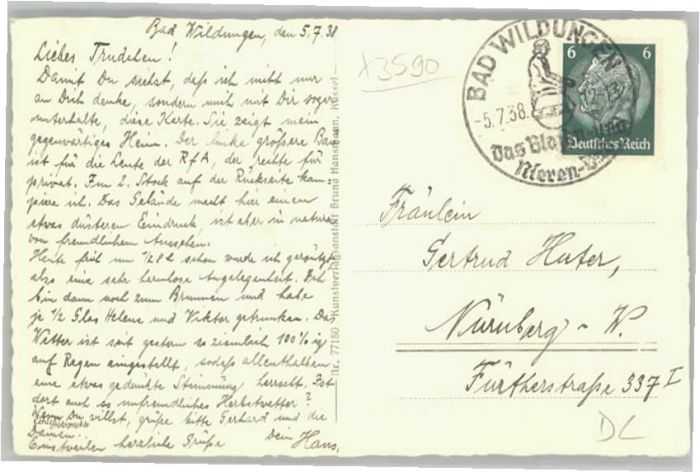 Bad Wildungen, den 5.7.38
Liebes Trudchen!
Damit Du siehst, daß ich nicht nur
an Dich denke, sondern mich mit Dir sogar
unterhalte, diese Karte. Sie zeigt mein
gegenwärtiges Heim. Der linke größere Bau
ist für die Leute der RfA, der rechte für
privat. Im 2. Stock auf der Rückseite kam-
piere ich. Das Gelände macht hier einen
etwas düsteren Eindruck, ist aber in natura
von freundlichem Aussehen.
Heute früh um 1/2 8 h schon wurde ich geröntgt
also eine sehr harmlose Angelegenheit. Ich
bin dann noch zum Brunnen und habe
je 1/2 Glas Helene und Viktor getrunken. Das
Wetter ist seit gestern so ziemlich 100%ig
auf Regen eingestellt, sodaß allenthalben
eine etwas gedrückte Stimmung herrscht. Ist
dort auch so unfreundliches Herbstwetter?
Wenn Du willst, grüße bitte Gerhard und die
Damen.
Einstweilen herzliche Grüße Dein Hans.
Nr. 77180 Kunstverlagsanstalt Bruno Hansmann, Kassel
x3590
BAD WILDUNGEN
-5.7.38. 12-13
Das Blasen- und
Nieren-
6 6
Deutsches Reich
Fräulein
Gertrud Huter,
Nürnberg-W.
Fürtherstraße 337 I
DL